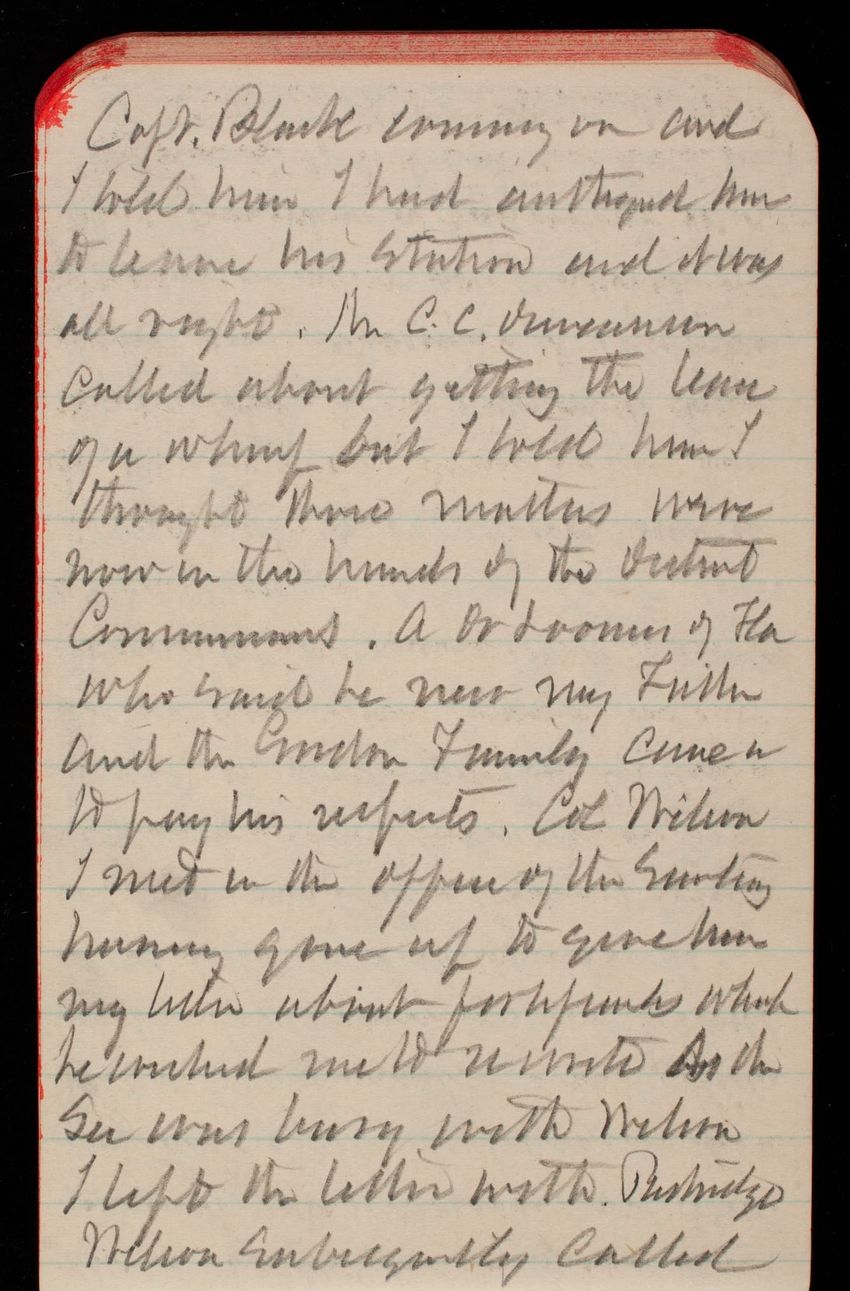 Capt. Black coming on and
I told him I had authorized him
to leave his Station and it was
all right. Mr C. C. Duncanson
called about getting the lease
of a wharf but I told him I
thought those matters were
now in the hands of the District
Commrs. A Dr of Fla
who said he knew my Father
and the Gordon Family came in
to pay his respects. Col Wilson
I met in the office of the Secretary
having gone up to give him
my letter about which
he wished me to rewrite As the
Sec was busy with Wilson
I left the letter with. Partridge
Wilson Subsequently Called